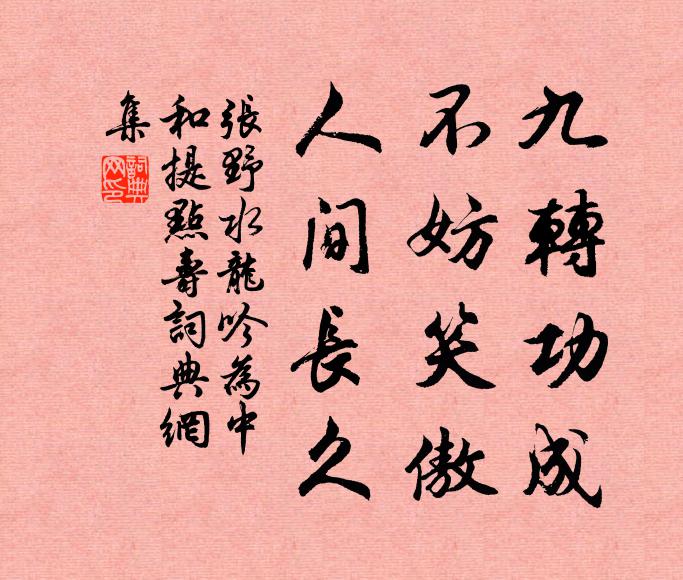 九轉功成
不妨笑傲
人間長久
張野水龍吟為中
和提點壽詞典網
集
詞典
网印